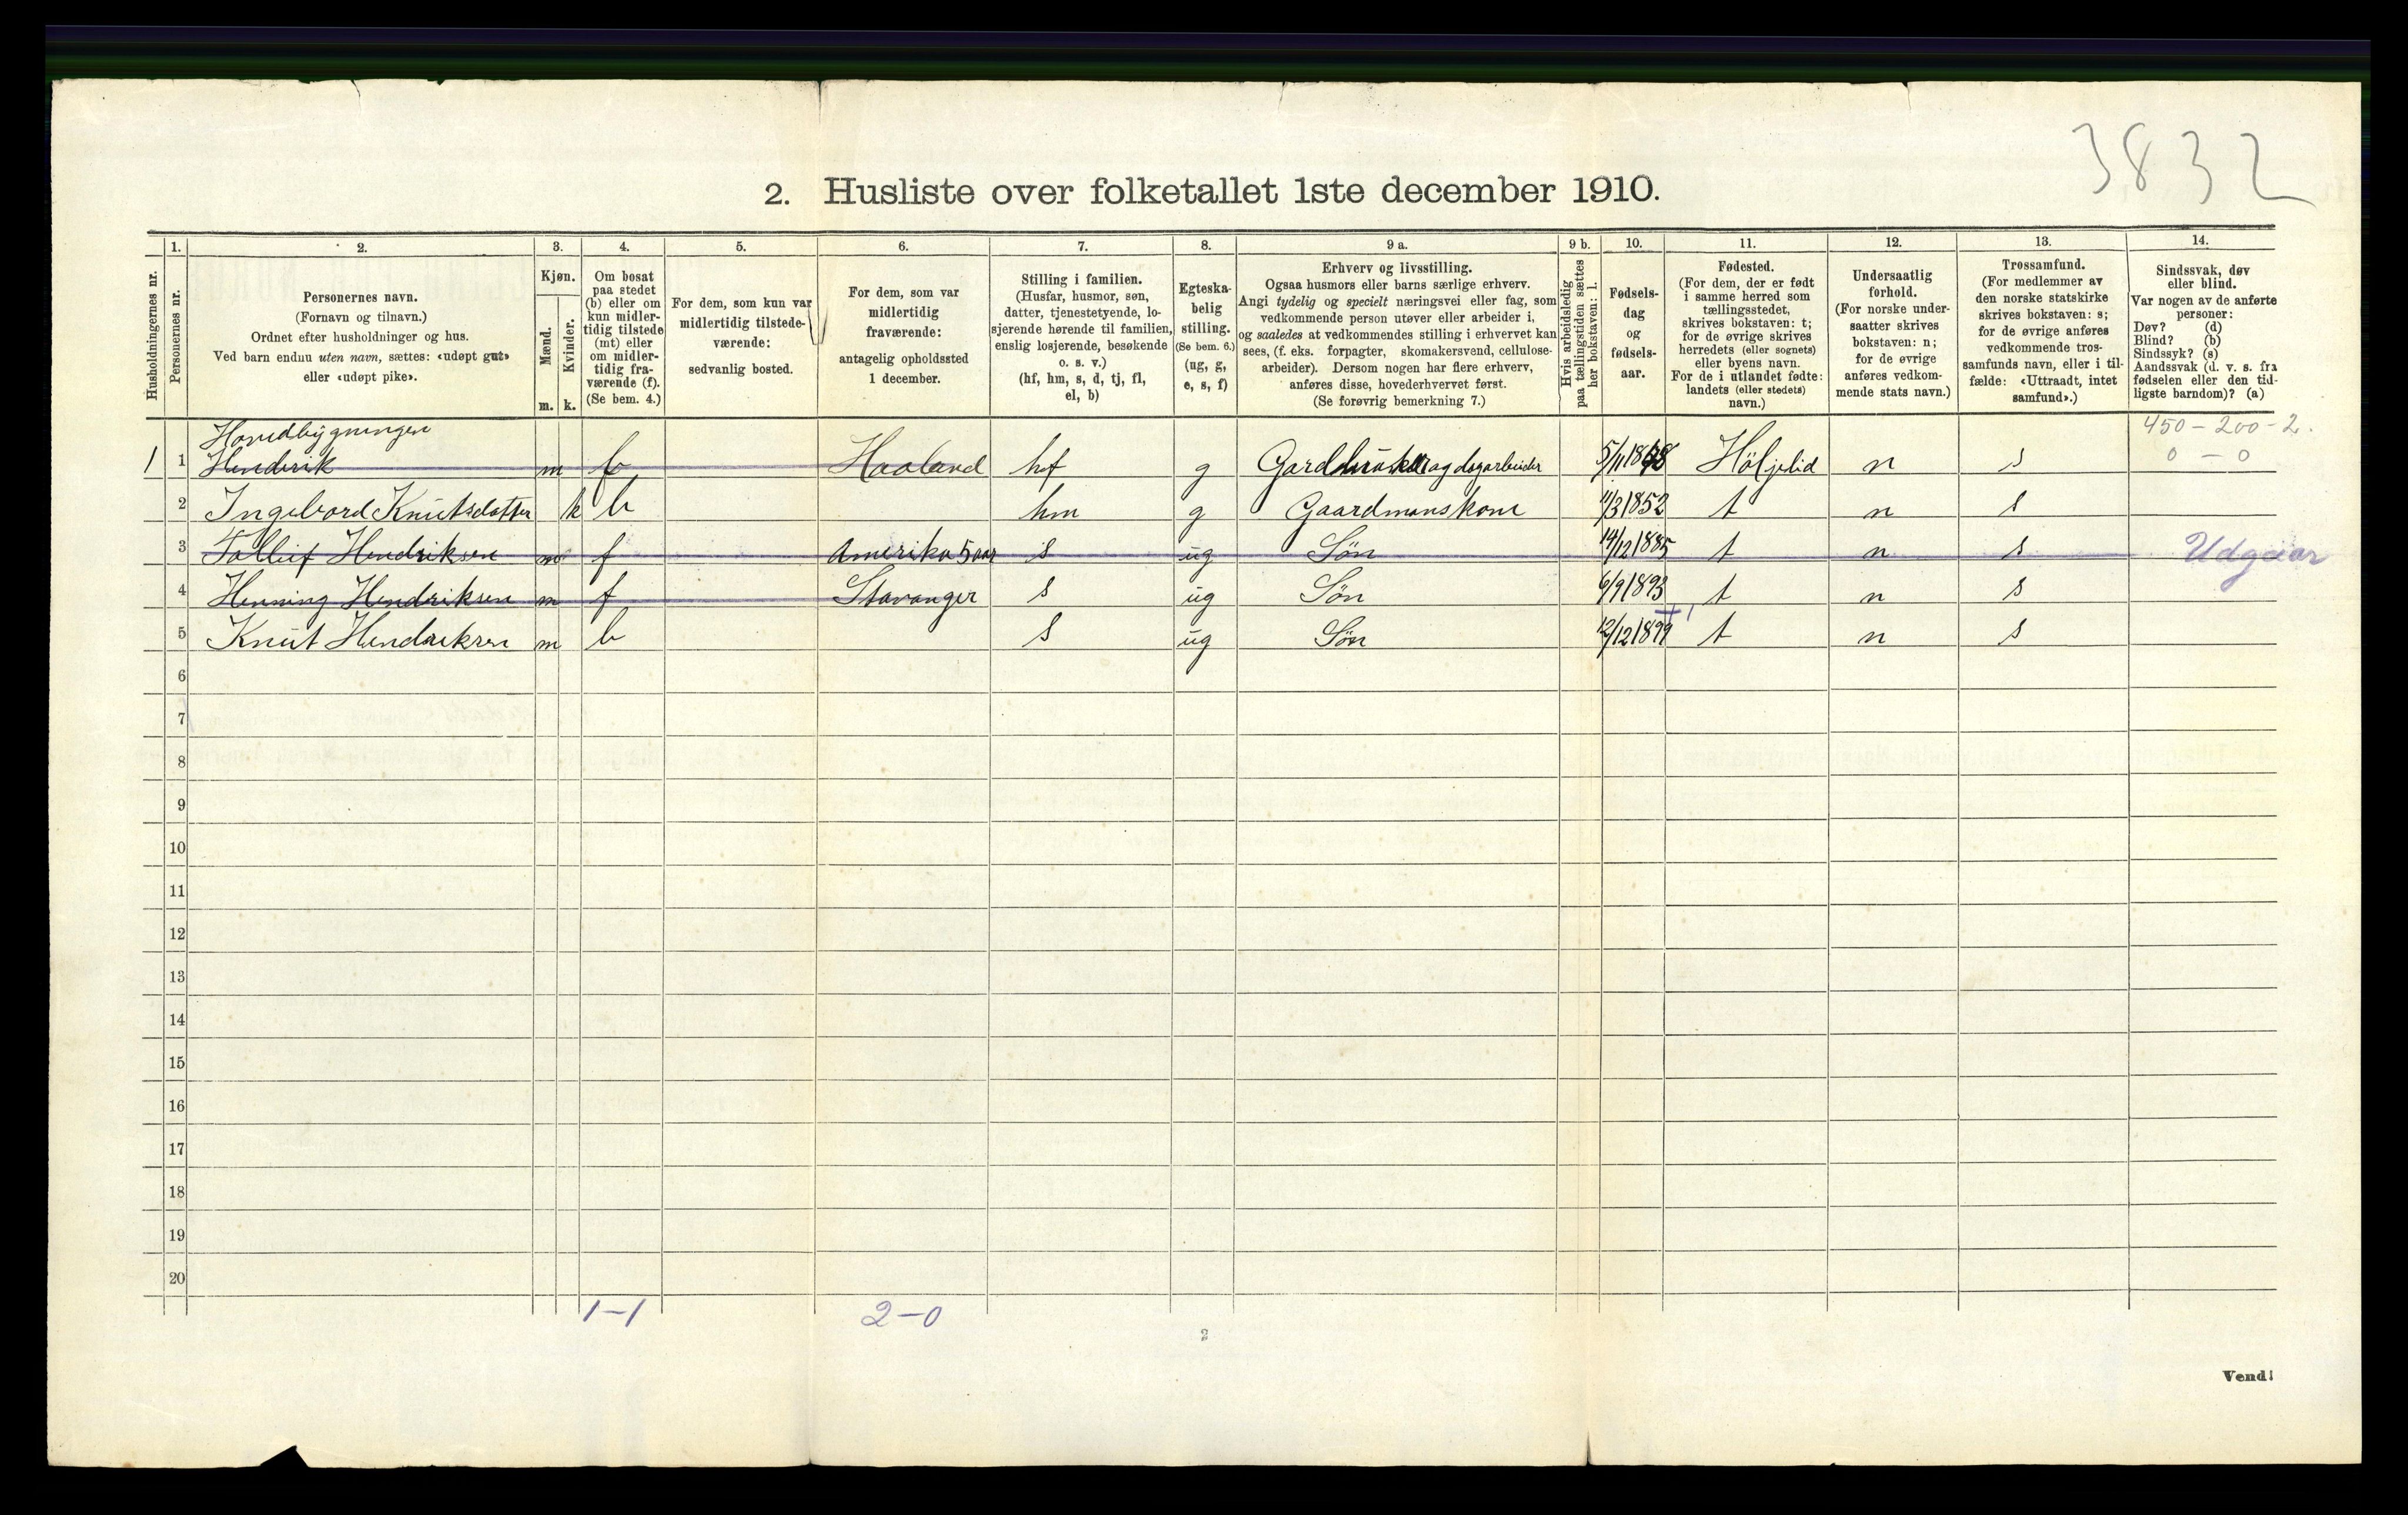 3832
2. Husliste over folketallet 1ste december 1910.
Husholdningernes nr.
1.
Personernes nr.
2.
Personernes navn.
(Fornavn og tilnavn.)
Ordnet efter husholdninger og hus.
Ved barn endnu uten navn, sættes: «udøpt gut»
eller «udøpt pike».
3.
Kjøn.
Mænd.
Kvinder.
m. k.
4.
Om bosat
paa stedet
(b) eller om
kun midler-
tidig tilstede
(mt) eller
om midler-
tidig fra-
værende (f).
(Se bem. 4.)
5.
For dem, som kun var
midlertidig tilstede-
værende:
sedvanlig bosted.
6.
For dem, som var
midlertidig
fraværende:
antagelig opholdssted
1 december.
7.
Stilling i familien.
(Husfar, husmor, søn,
datter, tjenestetyende, lo-
sjerende hørende til familien,
enslig losjerende, besøkende
o. s. v.)
(hf, hm, s, d, tj, fl,
el, b)
8.
Egteska-
belig
stilling.
(Se bem. 6.)
(ug, g,
e, s, f)
9 a.
Erhverv og livsstilling.
Ogsaa husmors eller barns særlige erhverv.
Angi tydelig og specielt næringsvei eller fag, som
vedkommende person utøver eller arbeider i,
og saaledes at vedkommendes stilling i erhvervet kan
sees, (f. eks. forpagter, skomakersvend, cellulose-
arbeider). Dersom nogen har flere erhverv,
anføres disse, hovederhvervet først.
(Se forøvrig bemerkning 7.)
9 b.
Hvis arbeidsledig
paa tællingstiden sættes
her bokstaven: l.
10.
Fødsels-
dag
og
fødsels-
aar.
11.
Fødested.
(For dem, der er født
i samme herred som
tællingsstedet,
skrives bokstaven: t;
for de øvrige skrives
herredets (eller sognets)
eller byens navn.
For de i utlandet fødte:
landets (eller stedets)
navn.)
12.
Undersaatlig
forhold.
(For norske under-
saatter skrives
bokstaven: n;
for de øvrige
anføres vedkom-
mende stats navn.)
13.
Trossamfund.
(For medlemmer av
den norske statskirke
skrives bokstaven: s;
for de øvrige anføres
vedkommende tros-
samfunds navn, eller i til-
fælde: «Uttraadt, intet
samfund».)
14.
Sindssvak, døv
eller blind.
Var nogen av de anførte
personer:
Døv? (d)
Blind? (b)
Sindssyk? (s)
Aandssvak (d. v. s. fra
fødselen eller den tid-
ligste barndom)? (a)
Hovedbygningen 450 - 200 - 2.
1 1 Hendrik m Haaland hf g og dagarbeider n s 0 - 0
2 Ingebord Knutsdatter k b hm g Gaardmanskone 11/3 1852 t n s
3 Tollief Hendriksen m f Amerika 5 aar s ug Søn 14/12 1885 t n s Udgaar
4 Henning Hendriksen m f Stavanger s ug Søn 6/9 1893 t n s
5 Knut Hendriksen m b s ug Søn t n s
6
7
8
9
10
11
12
13
14
15
16
17
18
19
20
1-1 2-0
2
Vend!